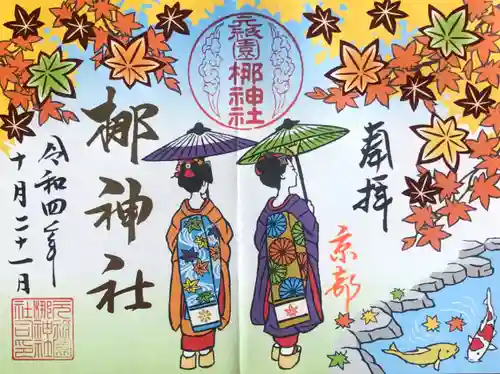 奉拝
京都
元祇園梛神社
梛神社
令和四年
十月二十一日
元祇園
梛神社
社印